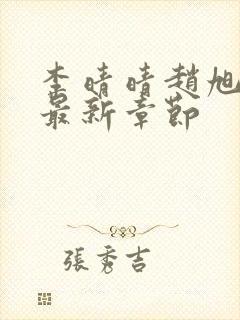 李晴晴趙旭
最新章節
張秀吉